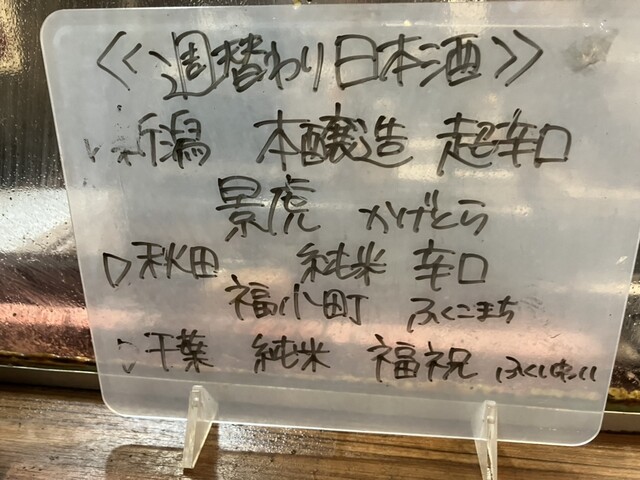 <<週替わり日本酒>>
▷新潟 本醸造 超辛口
景虎 かげとら
▷秋田 純米 辛口
福小町 ふくこまち
▷千葉 純米 福祝 ふくいわい